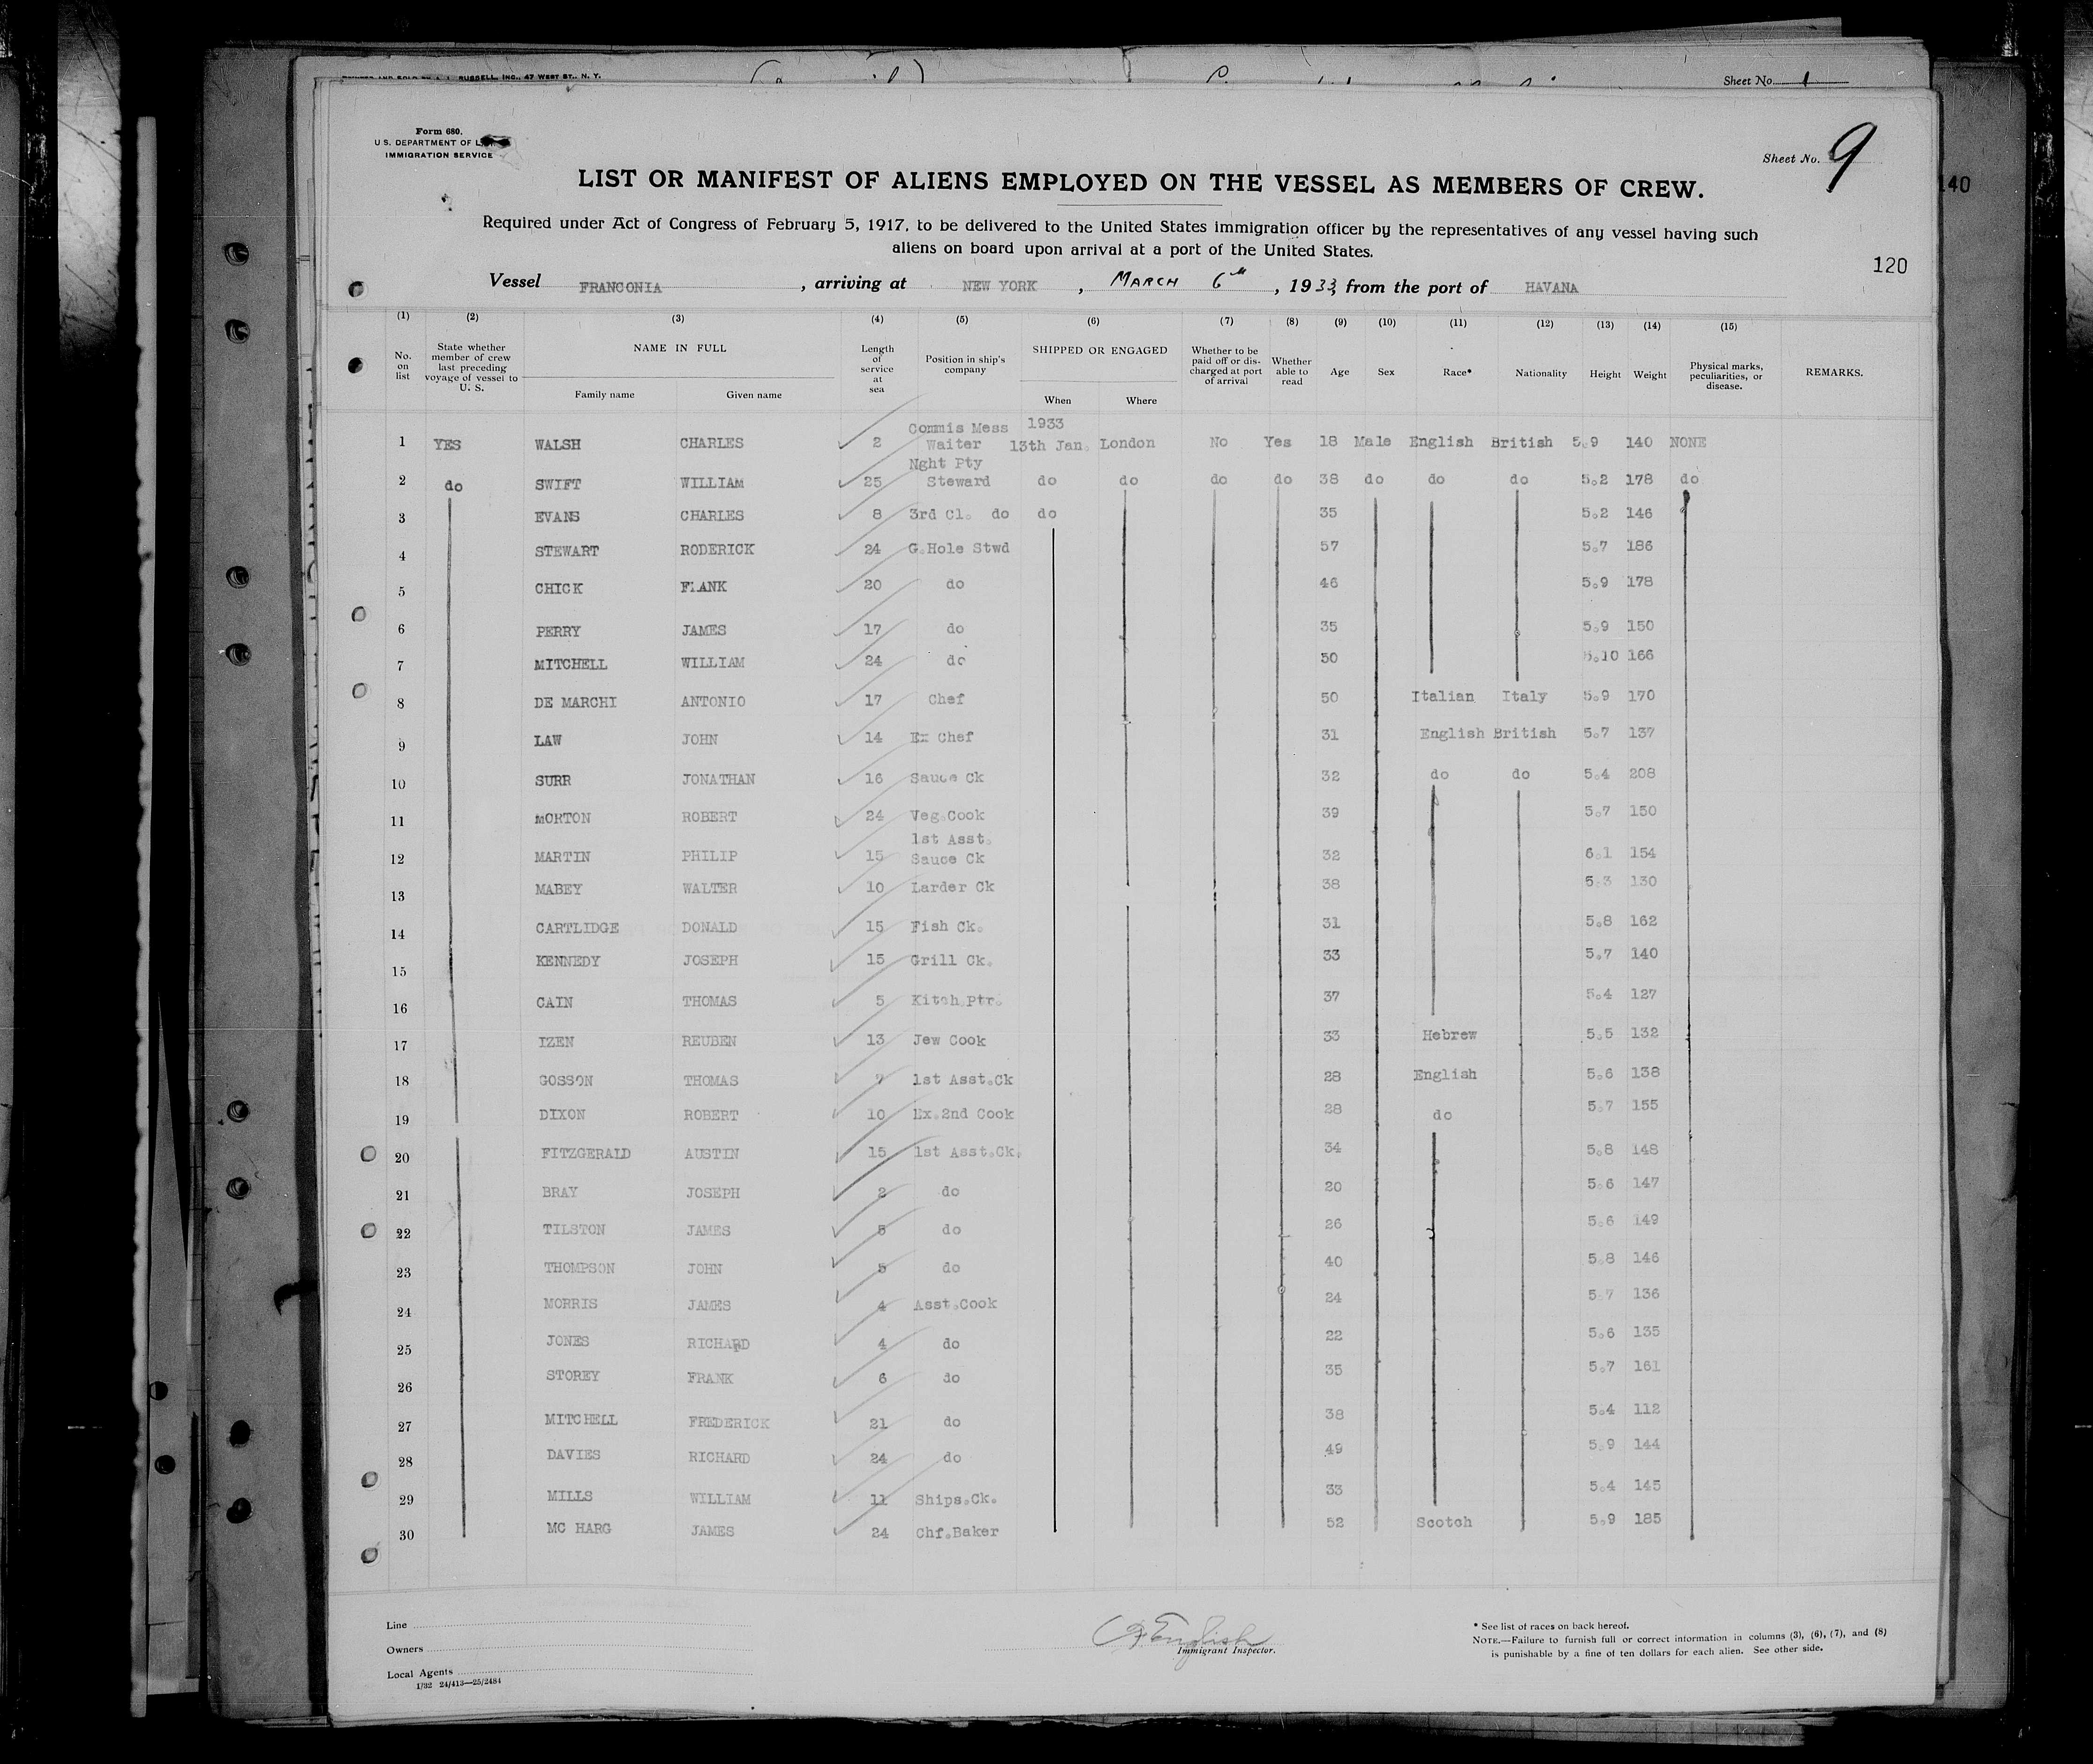 RUSSELL, INC., 47 WEST ST., N. Y.
Sheet No. 1
Form 680.
U. S. DEPARTMENT OF
IMMIGRATION SERVICE
Sheet No. 9
140
LIST OR MANIFEST OF ALIENS EMPLOYED ON THE VESSEL AS MEMBERS OF CREW.
Required under Act of Congress of February 5, 1917, to be delivered to the United States immigration officer by the representatives of any vessel having such
aliens on board upon arrival at a port of the United States.
120
Vessel FRANCONIA, arriving at NEW YORK, MARCH 6th, 1933, from the port of HAVANA
(1) (2) (3) (4) (5) (6) (7) (8) (9) (10) (11) (12) (13) (14) (15)
No. on list State whether member of crew last preceding voyage of vessel to U. S. NAME IN FULL Family name Given name Length of service at sea Position in ship's company SHIPPED OR ENGAGED When Where Whether to be paid off or discharged at port of arrival Whether able to read Age Sex Race* Nationality Height Weight Physical marks, peculiarities, or disease. REMARKS.
Commis Mess 1933
1 YES WALSH CHARLES 2 Waiter 13th Jan. London No Yes 18 Male English British 5.9 140 NONE
Nght Pty
2 do SWIFT WILLIAM 25 Steward do do do do 38 do do do 5.2 178 do
3 EVANS CHARLES 8 3rd Cl. do do 35 5.2 146
4 STEWART RODERICK 24 G.Hole Stwd 57 5.7 186
5 CHICK FRANK 20 do 46 5.9 178
6 PERRY JAMES 17 do 35 5.9 150
7 MITCHELL WILLIAM 24 do 50 5.10 166
8 DE MARCHI ANTONIO 17 Chef 50 Italian Italy 5.9 170
9 LAW JOHN 14 Ex Chef 31 English British 5.7 137
10 SURR JONATHAN 16 Sauce Ck 32 do do 5.4 208
11 MORTON ROBERT 24 Veg.Cook 39 5.7 150
1st Asst.
12 MARTIN PHILIP 15 Sauce Ck 32 6.1 154
13 MABEY WALTER 10 Larder Ck 38 5.3 130
14 CARTLIDGE DONALD 15 Fish Ck. 31 5.8 162
15 KENNEDY JOSEPH 15 Grill Ck. 33 5.7 140
16 CAIN THOMAS 5 Kitch.Ptr. 37 5.4 127
17 IZEN REUBEN 13 Jew Cook 33 Hebrew 5.5 132
18 GOSSON THOMAS 7 1st Asst.Ck 28 English 5.6 138
19 DIXON ROBERT 10 Ex.2nd Cook 28 do 5.7 155
20 FITZGERALD AUSTIN 15 1st Asst.Ck. 34 5.8 148
21 BRAY JOSEPH 2 do 20 5.6 147
22 TILSTON JAMES 5 do 26 5.6 149
23 THOMPSON JOHN 5 do 40 5.8 146
24 MORRIS JAMES 4 Asst.Cook 24 5.7 136
25 JONES RICHARD 4 do 22 5.6 135
26 STOREY FRANK 6 do 35 5.7 161
27 MITCHELL FREDERICK 21 do 38 5.4 112
28 DAVIES RICHARD 24 do 49 5.9 144
29 MILLS WILLIAM 11 Ships.Ck. 33 5.4 145
30 MC HARG JAMES 24 Chf.Baker 52 Scotch 5.9 185
Line
Owners
Local Agents
1/32 24/413—25/2484
English
Immigrant Inspector.
* See list of races on back hereof.
NOTE.—Failure to furnish full or correct information in columns (3), (6), (7), and (8)
is punishable by a fine of ten dollars for each alien. See other side.